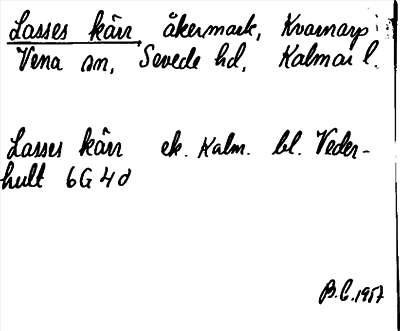 Lasses kärr, åkermark, Kvarnarp
Vena sn, Sevede hd, Kalmar l.
Lasses kärr ek. Kalm. bl. Veder-
hult 6G4d
B.C. 1957